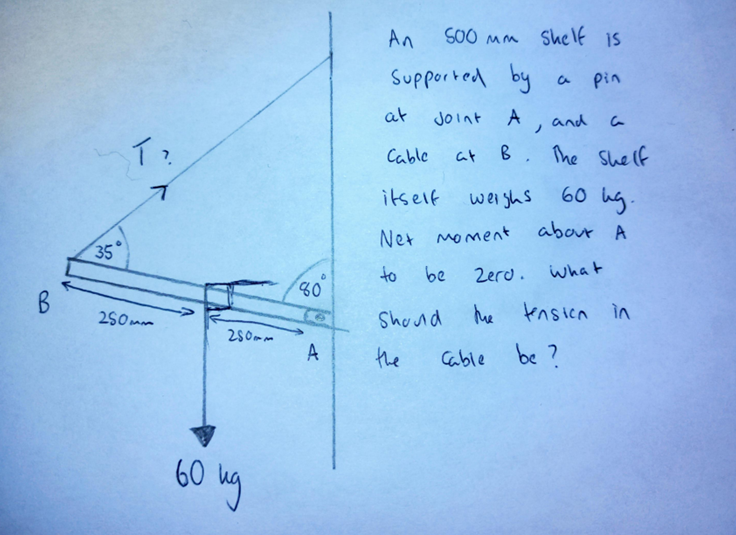 An 500 mm shelf is
supported by a pin
at joint A, and a
cable at B. The shelf
itself weighs 60 kg.
Net moment about A
to be zero. What
should the tension in
the cable be?
T?
35°
80°
B
250mm
250mm
A
60 kg